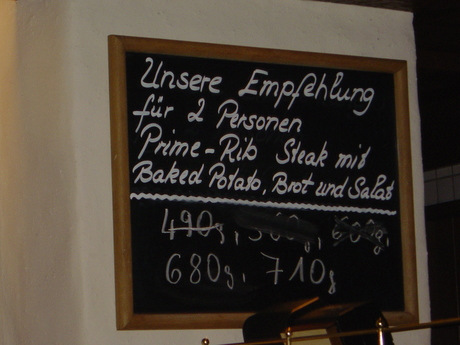 Unsere Empfehlung
für 2 Personen
Prime-Rib Steak mit
Baked Potato, Brot und Salat
490g, 500g, 600g,
680g, 710g